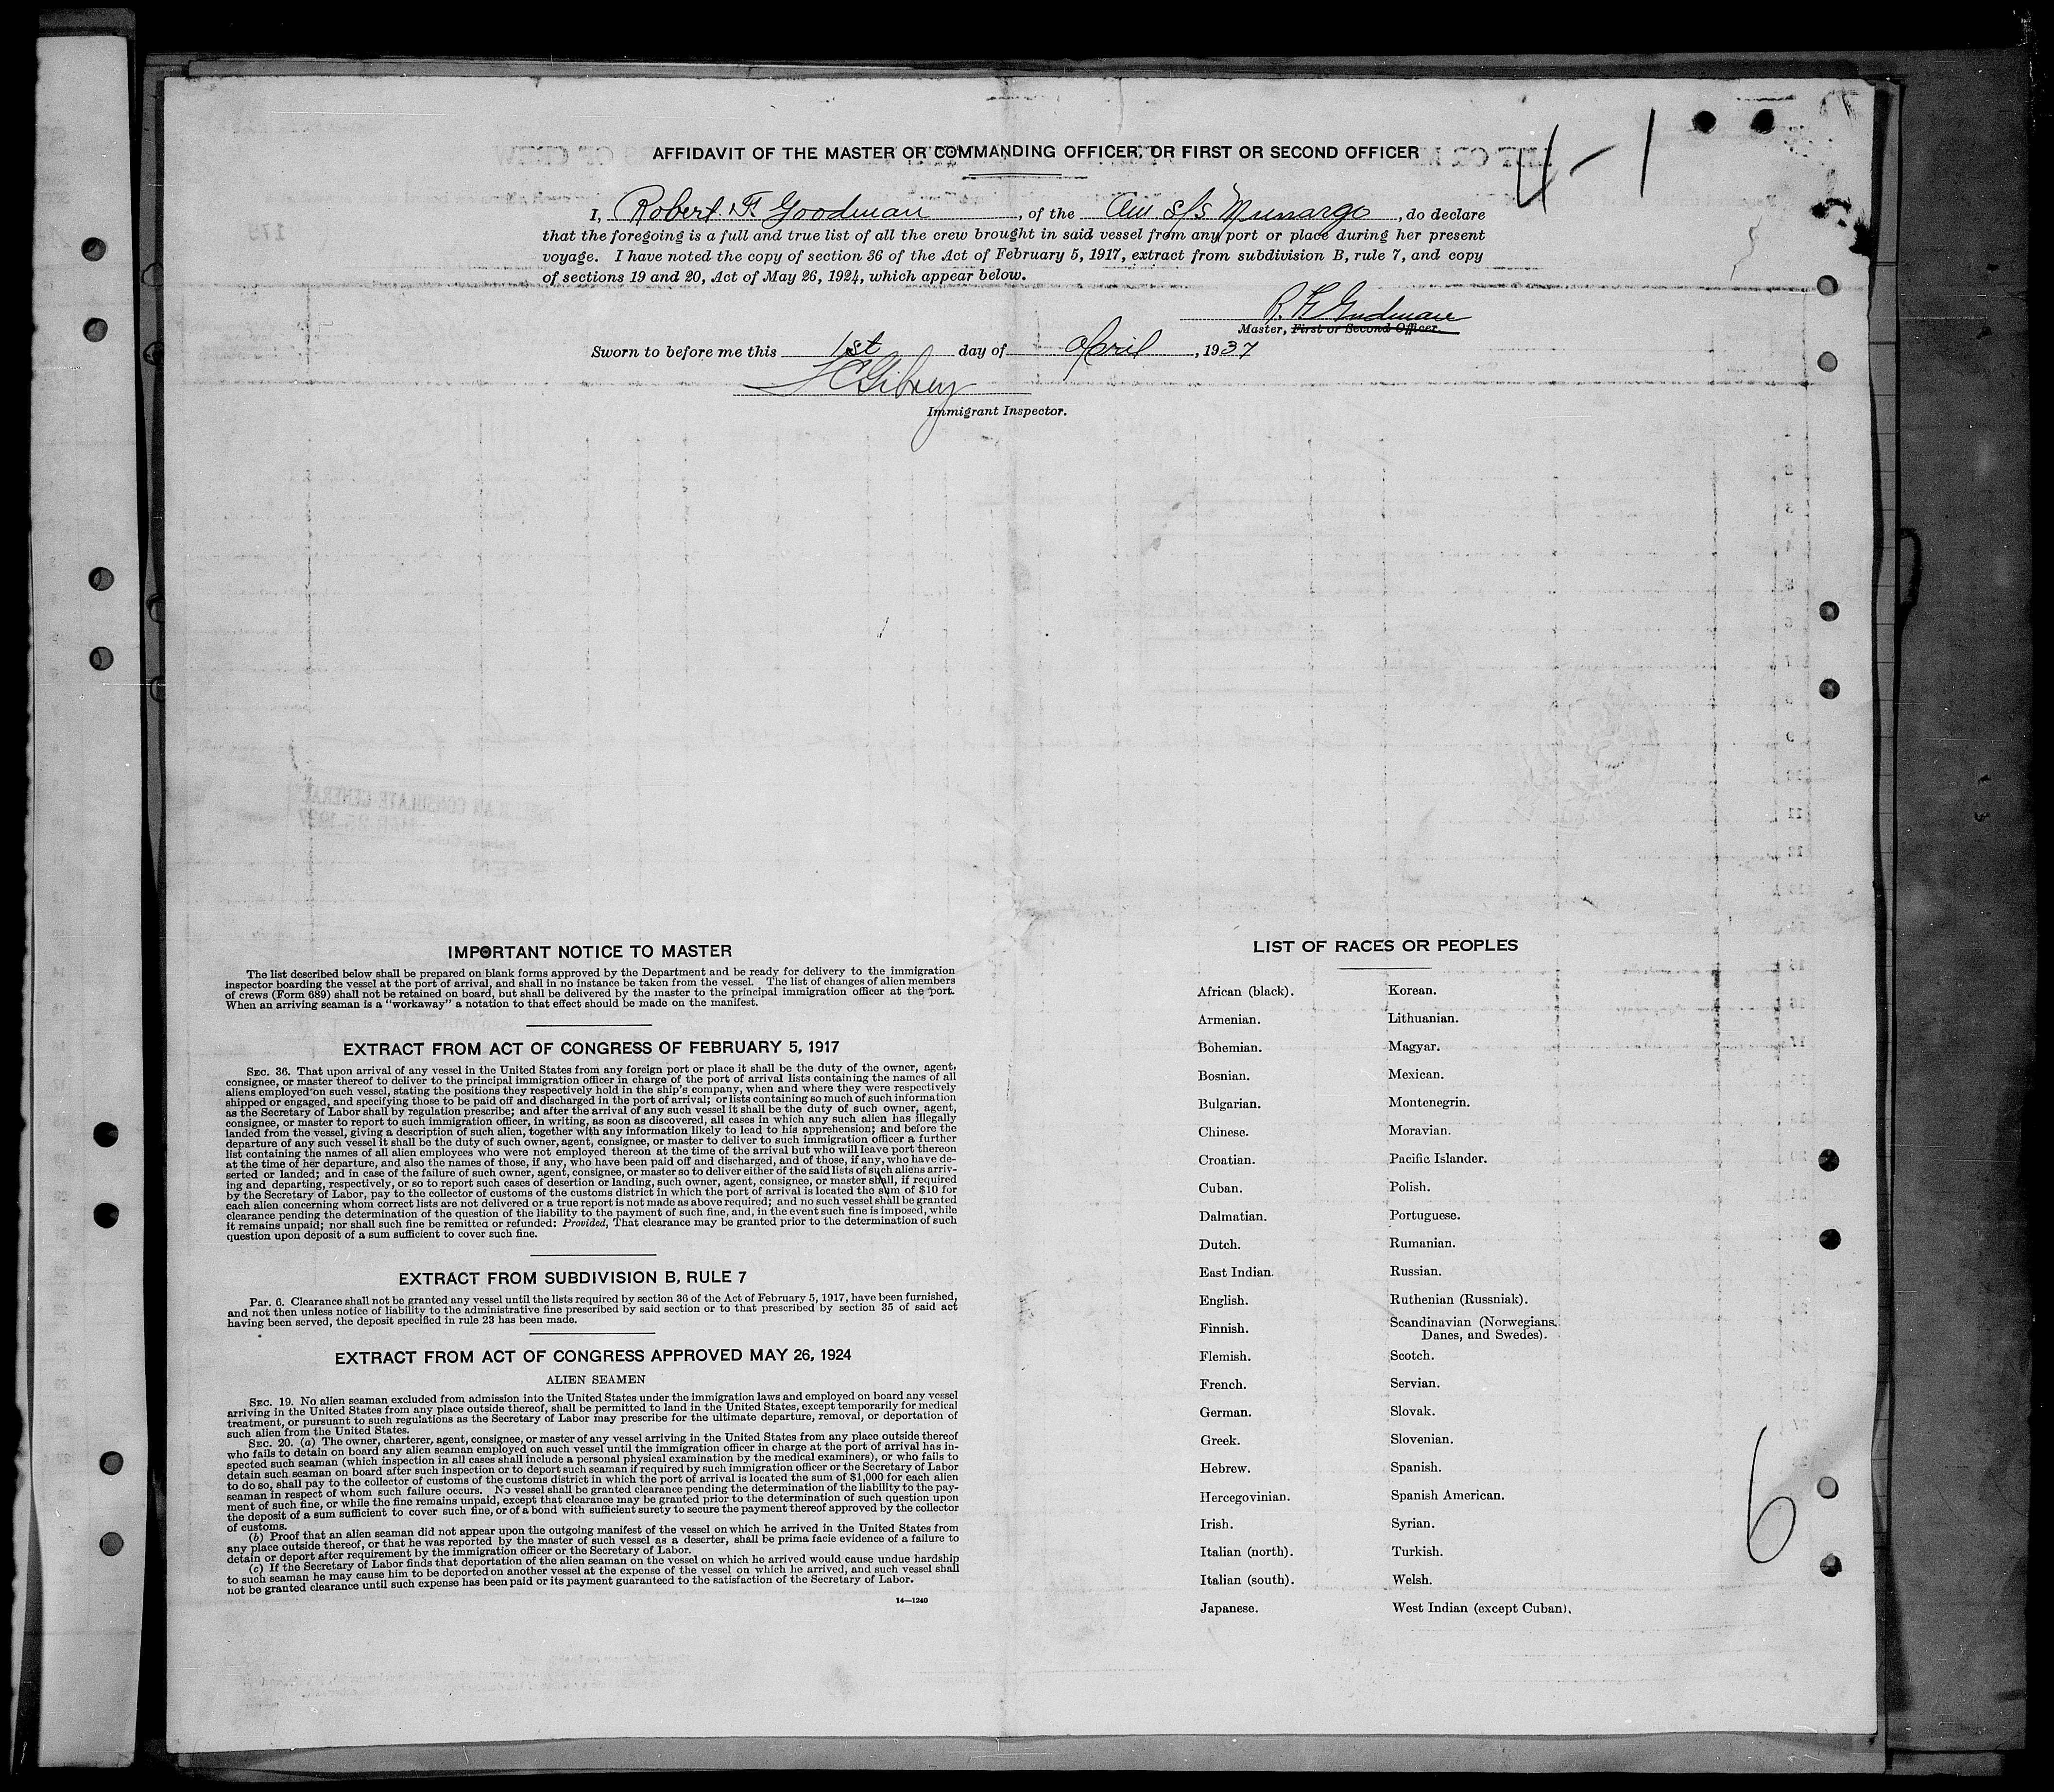 4-1
AFFIDAVIT OF THE MASTER OR COMMANDING OFFICER, OR FIRST OR SECOND OFFICER
I, Robert F. Goodman, of the Am s/s Munargo, do declare
that the foregoing is a full and true list of all the crew brought in said vessel from any port or place during her present
voyage. I have noted the copy of section 36 of the Act of February 5, 1917, extract from subdivision B, rule 7, and copy
of sections 19 and 20, Act of May 26, 1924, which appear below.
R. F. Goodman
Master, First or Second Officer.
Sworn to before me this 1st day of April, 1937
Immigrant Inspector.
IMPORTANT NOTICE TO MASTER
The list described below shall be prepared on blank forms approved by the Department and be ready for delivery to the immigration
inspector boarding the vessel at the port of arrival, and shall in no instance be taken from the vessel. The list of changes of alien members
of crews (Form 689) shall not be retained on board, but shall be delivered by the master to the principal immigration officer at the port.
When an arriving seaman is a "workaway" a notation to that effect should be made on the manifest.
EXTRACT FROM ACT OF CONGRESS OF FEBRUARY 5, 1917
SEC. 36. That upon arrival of any vessel in the United States from any foreign port or place it shall be the duty of the owner, agent,
consignee, or master thereof to deliver to the principal immigration officer in charge of the port of arrival lists containing the names of all
aliens employed on such vessel, stating the positions they respectively hold in the ship's company, when and where they were respectively
shipped or engaged, and specifying those to be paid off and discharged in the port of arrival; or lists containing so much of such information
as the Secretary of Labor shall by regulation prescribe; and after the arrival of any such vessel it shall be the duty of such owner, agent,
consignee, or master to report to such immigration officer, in writing, as soon as discovered, all cases in which any such alien has illegally
landed from the vessel, giving a description of such alien, together with any information likely to lead to his apprehension; and before the
departure of any such vessel it shall be the duty of such owner, agent, consignee, or master to deliver to such immigration officer a further
list containing the names of all alien employees who were not employed thereon at the time of the arrival but who will leave port thereon
at the time of her departure, and also the names of those, if any, who have been paid off and discharged, and of those, if any, who have de-
serted or landed; and in case of the failure of such owner, agent, consignee, or master so to deliver either of the said lists of such aliens arriv-
ing and departing, respectively, or so to report such cases of desertion or landing, such owner, agent, consignee, or master shall, if required
by the Secretary of Labor, pay to the collector of customs of the customs district in which the port of arrival is located the sum of $10 for
each alien concerning whom correct lists are not delivered or a true report is not made as above required; and no such vessel shall be granted
clearance pending the determination of the question of the liability to the payment of such fine, and, in the event such fine is imposed, while
it remains unpaid; nor shall such fine be remitted or refunded: Provided, That clearance may be granted prior to the determination of such
question upon deposit of a sum sufficient to cover such fine.
EXTRACT FROM SUBDIVISION B, RULE 7
PAR. 6. Clearance shall not be granted any vessel until the lists required by section 36 of the Act of February 5, 1917, have been furnished,
and not then unless notice of liability to the administrative fine prescribed by said section or to that prescribed by section 35 of said act
having been served, the deposit specified in rule 23 has been made.
EXTRACT FROM ACT OF CONGRESS APPROVED MAY 26, 1924
ALIEN SEAMEN
SEC. 19. No alien seaman excluded from admission into the United States under the immigration laws and employed on board any vessel
arriving in the United States from any place outside thereof, shall be permitted to land in the United States, except temporarily for medical
treatment, or pursuant to such regulations as the Secretary of Labor may prescribe for the ultimate departure, removal, or deportation of
such alien from the United States.
SEC. 20. (a) The owner, charterer, agent, consignee, or master of any vessel arriving in the United States from any place outside thereof
who fails to detain on board any alien seaman employed on such vessel until the immigration officer in charge at the port of arrival has in-
spected such seaman (which inspection in all cases shall include a personal physical examination by the medical examiners), or who fails to
detain such seaman on board after such inspection or to deport such seaman if required by such immigration officer or the Secretary of Labor
to do so, shall pay to the collector of customs of the customs district in which the port of arrival is located the sum of $1,000 for each alien
seaman in respect of whom such failure occurs. No vessel shall be granted clearance pending the determination of the liability to the pay-
ment of such fine, or while the fine remains unpaid, except that clearance may be granted prior to the determination of such question upon
the deposit of a sum sufficient to cover such fine, or of a bond with sufficient surety to secure the payment thereof approved by the collector
of customs.
(b) Proof that an alien seaman did not appear upon the outgoing manifest of the vessel on which he arrived in the United States from
any place outside thereof, or that he was reported by the master of such vessel as a deserter, shall be prima facie evidence of a failure to
detain or deport after requirement by the immigration officer or the Secretary of Labor.
(c) If the Secretary of Labor finds that deportation of the alien seaman on the vessel on which he arrived would cause undue hardship
to such seaman he may cause him to be deported on another vessel at the expense of the vessel on which he arrived, and such vessel shall
not be granted clearance until such expense has been paid or its payment guaranteed to the satisfaction of the Secretary of Labor.
14—1240
LIST OF RACES OR PEOPLES
African (black).
Armenian.
Bohemian.
Bosnian.
Bulgarian.
Chinese.
Croatian.
Cuban.
Dalmatian.
Dutch.
East Indian.
English.
Finnish.
Flemish.
French.
German.
Greek.
Hebrew.
Hercegovinian.
Irish.
Italian (north).
Italian (south).
Japanese.
Korean.
Lithuanian.
Magyar.
Mexican.
Montenegrin.
Moravian.
Pacific Islander.
Polish.
Portuguese.
Rumanian.
Russian.
Ruthenian (Russniak).
Scandinavian (Norwegians,
Danes, and Swedes).
Scotch.
Servian.
Slovak.
Slovenian.
Spanish.
Spanish American.
Syrian.
Turkish.
Welsh.
West Indian (except Cuban).
6